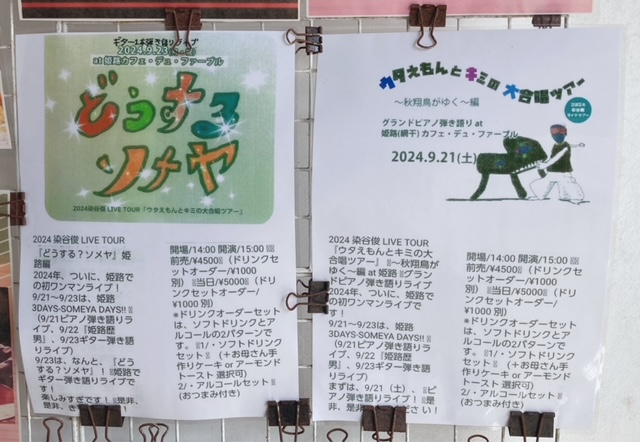 ギター1本弾き語りライブ
2024.9.23
at 姫路カフェ・デュ・ファーブル
どうする
ソメヤ
2024染谷俊 LIVE TOUR 「ウタえもんとキミの大合唱ツアー」
2024 染谷俊 LIVE TOUR
『どうする？ソメヤ』姫路編
2024年、ついに、姫路での初ワンマンライブ！
9/21～9/23は、姫路
3DAYS-SOMEYA DAYS!!
（9/21ピアノ弾き語りライブ、9/22『姫路歴男』、9/23ギター弾き語りライブ）
9/23は、なんと、『どうする？ソメヤ』！姫路でギター弾き語りライブです！
楽しみすぎです！是非、是非、
開場/14:00 開演/15:00
前売/¥4500（ドリンクセットオーダー/¥1000別）当日/¥5000（ドリンクセットオーダー/¥1000 別）
※ドリンクオーダーセットは、ソフトドリンクとアルコールの2パターンです。1/・ソフトドリンクセット（＋お母さん手作りケーキ or アーモンドトースト 選択可）
2/・アルコールセット（おつまみ付き）
ウタえもんとキミの大合唱ツアー
～秋翔鳥がゆく～編
グランドピアノ弾き語り at
姫路(網干)カフェ・デュ・ファーブル
2024.9.21(土)
2024 染谷俊 LIVE TOUR
『ウタえもんとキミの大合唱ツアー』～秋翔鳥がゆく～編 at 姫路 グランドピアノ弾き語りライブ
2024年、ついに、姫路での初ワンマンライブ！
9/21～9/23は、姫路
3DAYS-SOMEYA DAYS!!
（9/21ピアノ弾き語りライブ、9/22『姫路歴男』、9/23ギター弾き語りライブ）
まずは、9/21（土）、ピアノ弾き語りライブ！是非、是非
ださい！
開場/14:00 開演/15:00
前売/¥4500（ドリンクセットオーダー/¥1000別）当日/¥5000（ドリンクセットオーダー/¥1000 別）
※ドリンクオーダーセットは、ソフトドリンクとアルコールの2パターンです。1/・ソフトドリンクセット（＋お母さん手作りケーキ or アーモンドトースト 選択可）
2/・アルコールセット（おつまみ付き）